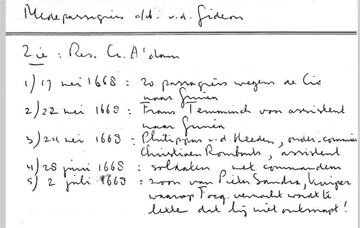 Medepassagiers a/b. v.d. Gideon
Zie: Res. Cr. A'dam
1) 17 mei 1668 : 20 passagiers wegens de Cie
naar Guinea
2) 22 mei 1668 : Frans Temminck van assistent
naar Guinea
3) 24 mei 1668 : Philippus v.d. Heeden, onder-commies
Christiaen Rombouts, assistent
4) 28 juni 1668 : soldaten met commandem
5) 2 juli 1668 : zoon van Pieter Sandra, kuiper
waarop verwacht wordt te
letten dat hij niet ontsnapt!